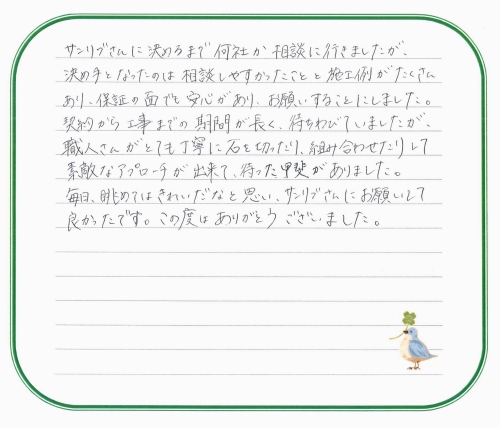 サンリブさんに決めるまで何社か相談に行きましたが、
決め手となったのは相談しやすかったことと施工例がたくさん
あり、保証の面でも安心があり、お願いすることにしました。
契約から工事までの期間が長く、待ちわびていましたが、
職人さんがとても丁寧に石を切ったり、組み合わせたりして
素敵なアプローチが出来て、待った甲斐がありました。
毎日、眺めてはきれいだなと思い、サンリブさんにお願いして
良かったです。この度はありがとうございました。